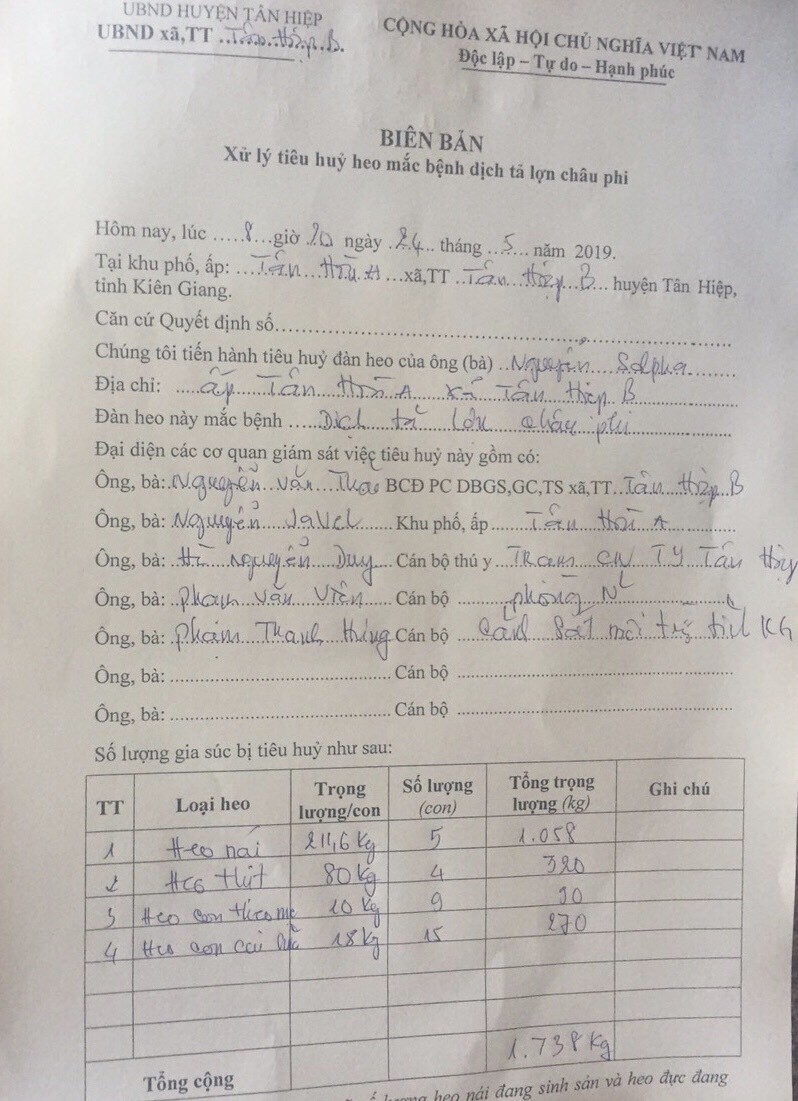 UBND HUYỆN TÂN HIỆP
UBND xã,TT ..Tân Hiệp B.
CỘNG HÒA XÃ HỘI CHỦ NGHĨA VIỆT NAM
Độc lập – Tự do – Hạnh phúc
BIÊN BẢN
Xử lý tiêu huỷ heo mắc bệnh dịch tả lợn châu phi
Hôm nay, lúc .....8...giờ .20 ngày .24... tháng ..5... năm 2019.
Tại khu phố, ấp: ...Tân Hòa A ...xã,TT ..Tân Hiệp B... huyện Tân Hiệp,
tỉnh Kiên Giang.
Căn cứ Quyết định số
Chúng tôi tiến hành tiêu huỷ đàn heo của ông (bà) ..Nguyễn Salpha
Địa chỉ: ....ấp Tân Hòa A xã Tân Hiệp B
Đàn heo này mắc bệnh ....Dịch tả lợn châu phi
Đại diện các cơ quan giám sát việc tiêu huỷ này gồm có:
Ông, bà: Nguyễn Văn Thao BCĐ PC DBGS,GC,TS xã,TT..Tân Hiệp B
Ông, bà: Nguyễn Javel Khu phố, ấp Tân Hòa A
Ông, bà: Hồ Nguyễn Duy Cán bộ thú y Trạm CN TY Tân Hiệp
Ông, bà: Phạm Văn Viên Cán bộ phòng N
Ông, bà: Phạm Thanh Hùng Cán bộ Cảnh Sát môi trg tỉnh KG
Ông, bà: Cán bộ
Ông, bà: Cán bộ
Số lượng gia súc bị tiêu huỷ như sau:
TT Loại heo Trọng lượng/con Số lượng (con) Tổng trọng lượng (kg) Ghi chú
1 Heo nái 211,6 Kg 5 1.058
2 Heo thịt 80 Kg 4 320
3 Heo con theo mẹ 10 Kg 9 90
4 Heo con cai sữa 18 Kg 15 270
Tổng cộng 1.738 Kg
lượng heo nái đang sinh sản và heo đực đang